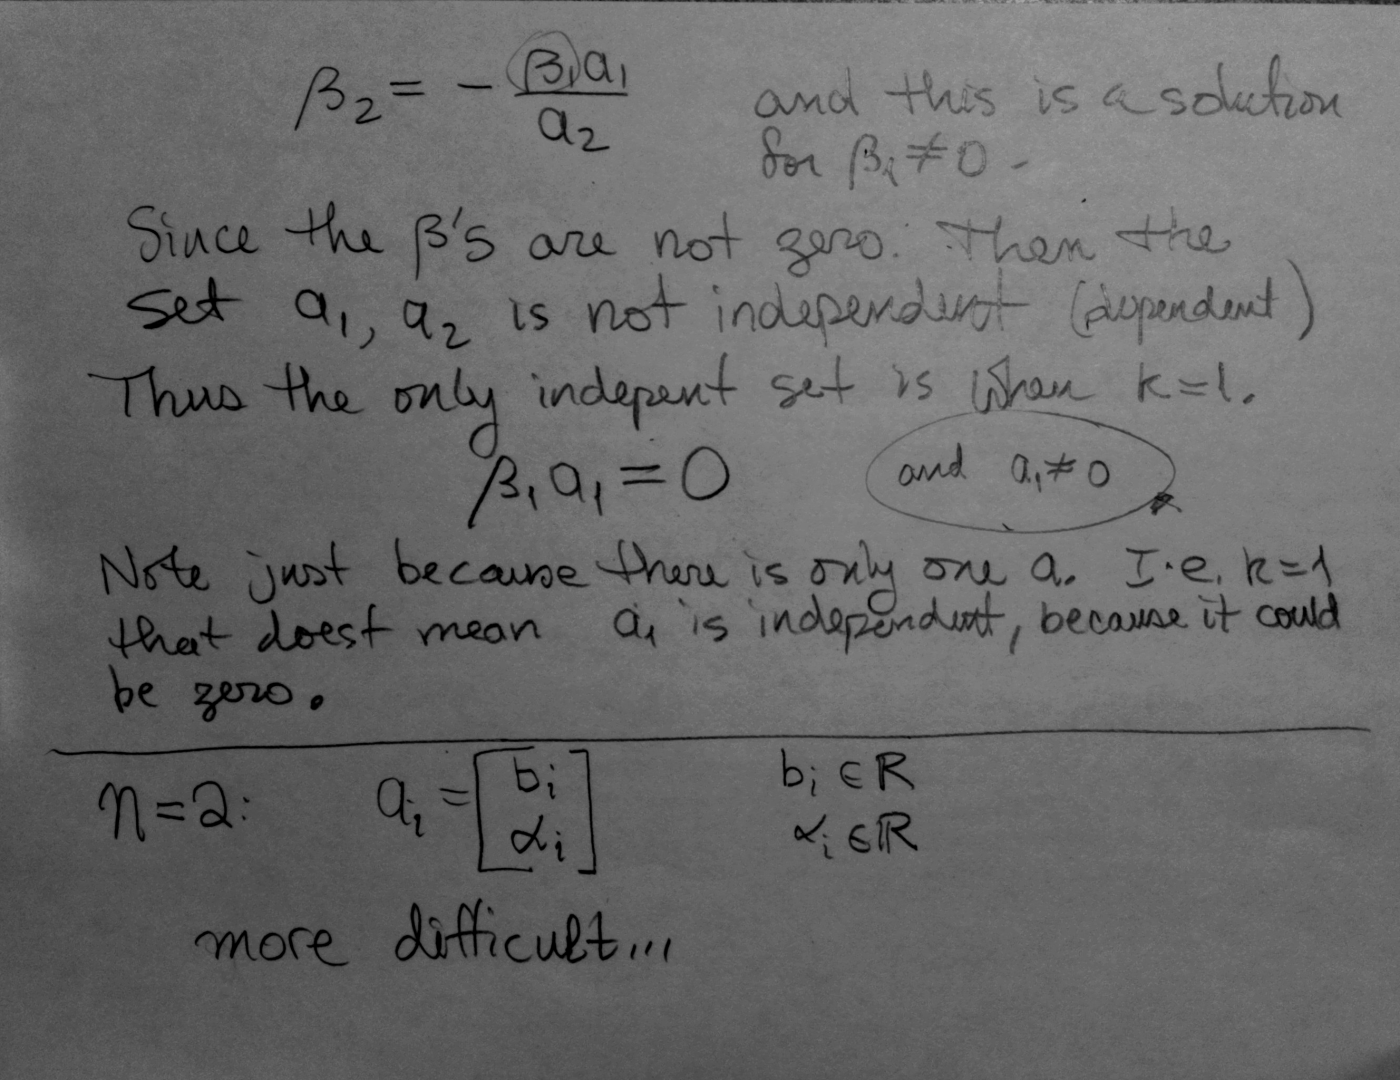 β₂ = - β₁a₁ / a₂
and this is a solution
for β₁ ≠ 0 -
Since the β's are not zero. Then the
set a₁, a₂ is not independent (dependent)
Thus the only indepent set is when k=1.
β₁a₁ = 0
and a₁ ≠ 0
Note just because there is only one a. I.e. k=1
that doest mean a₁ is independent, because it could
be zero.
n=2: aᵢ = [bᵢ αᵢ] bᵢ ∈ ℝ
αᵢ ∈ ℝ
more difficult...